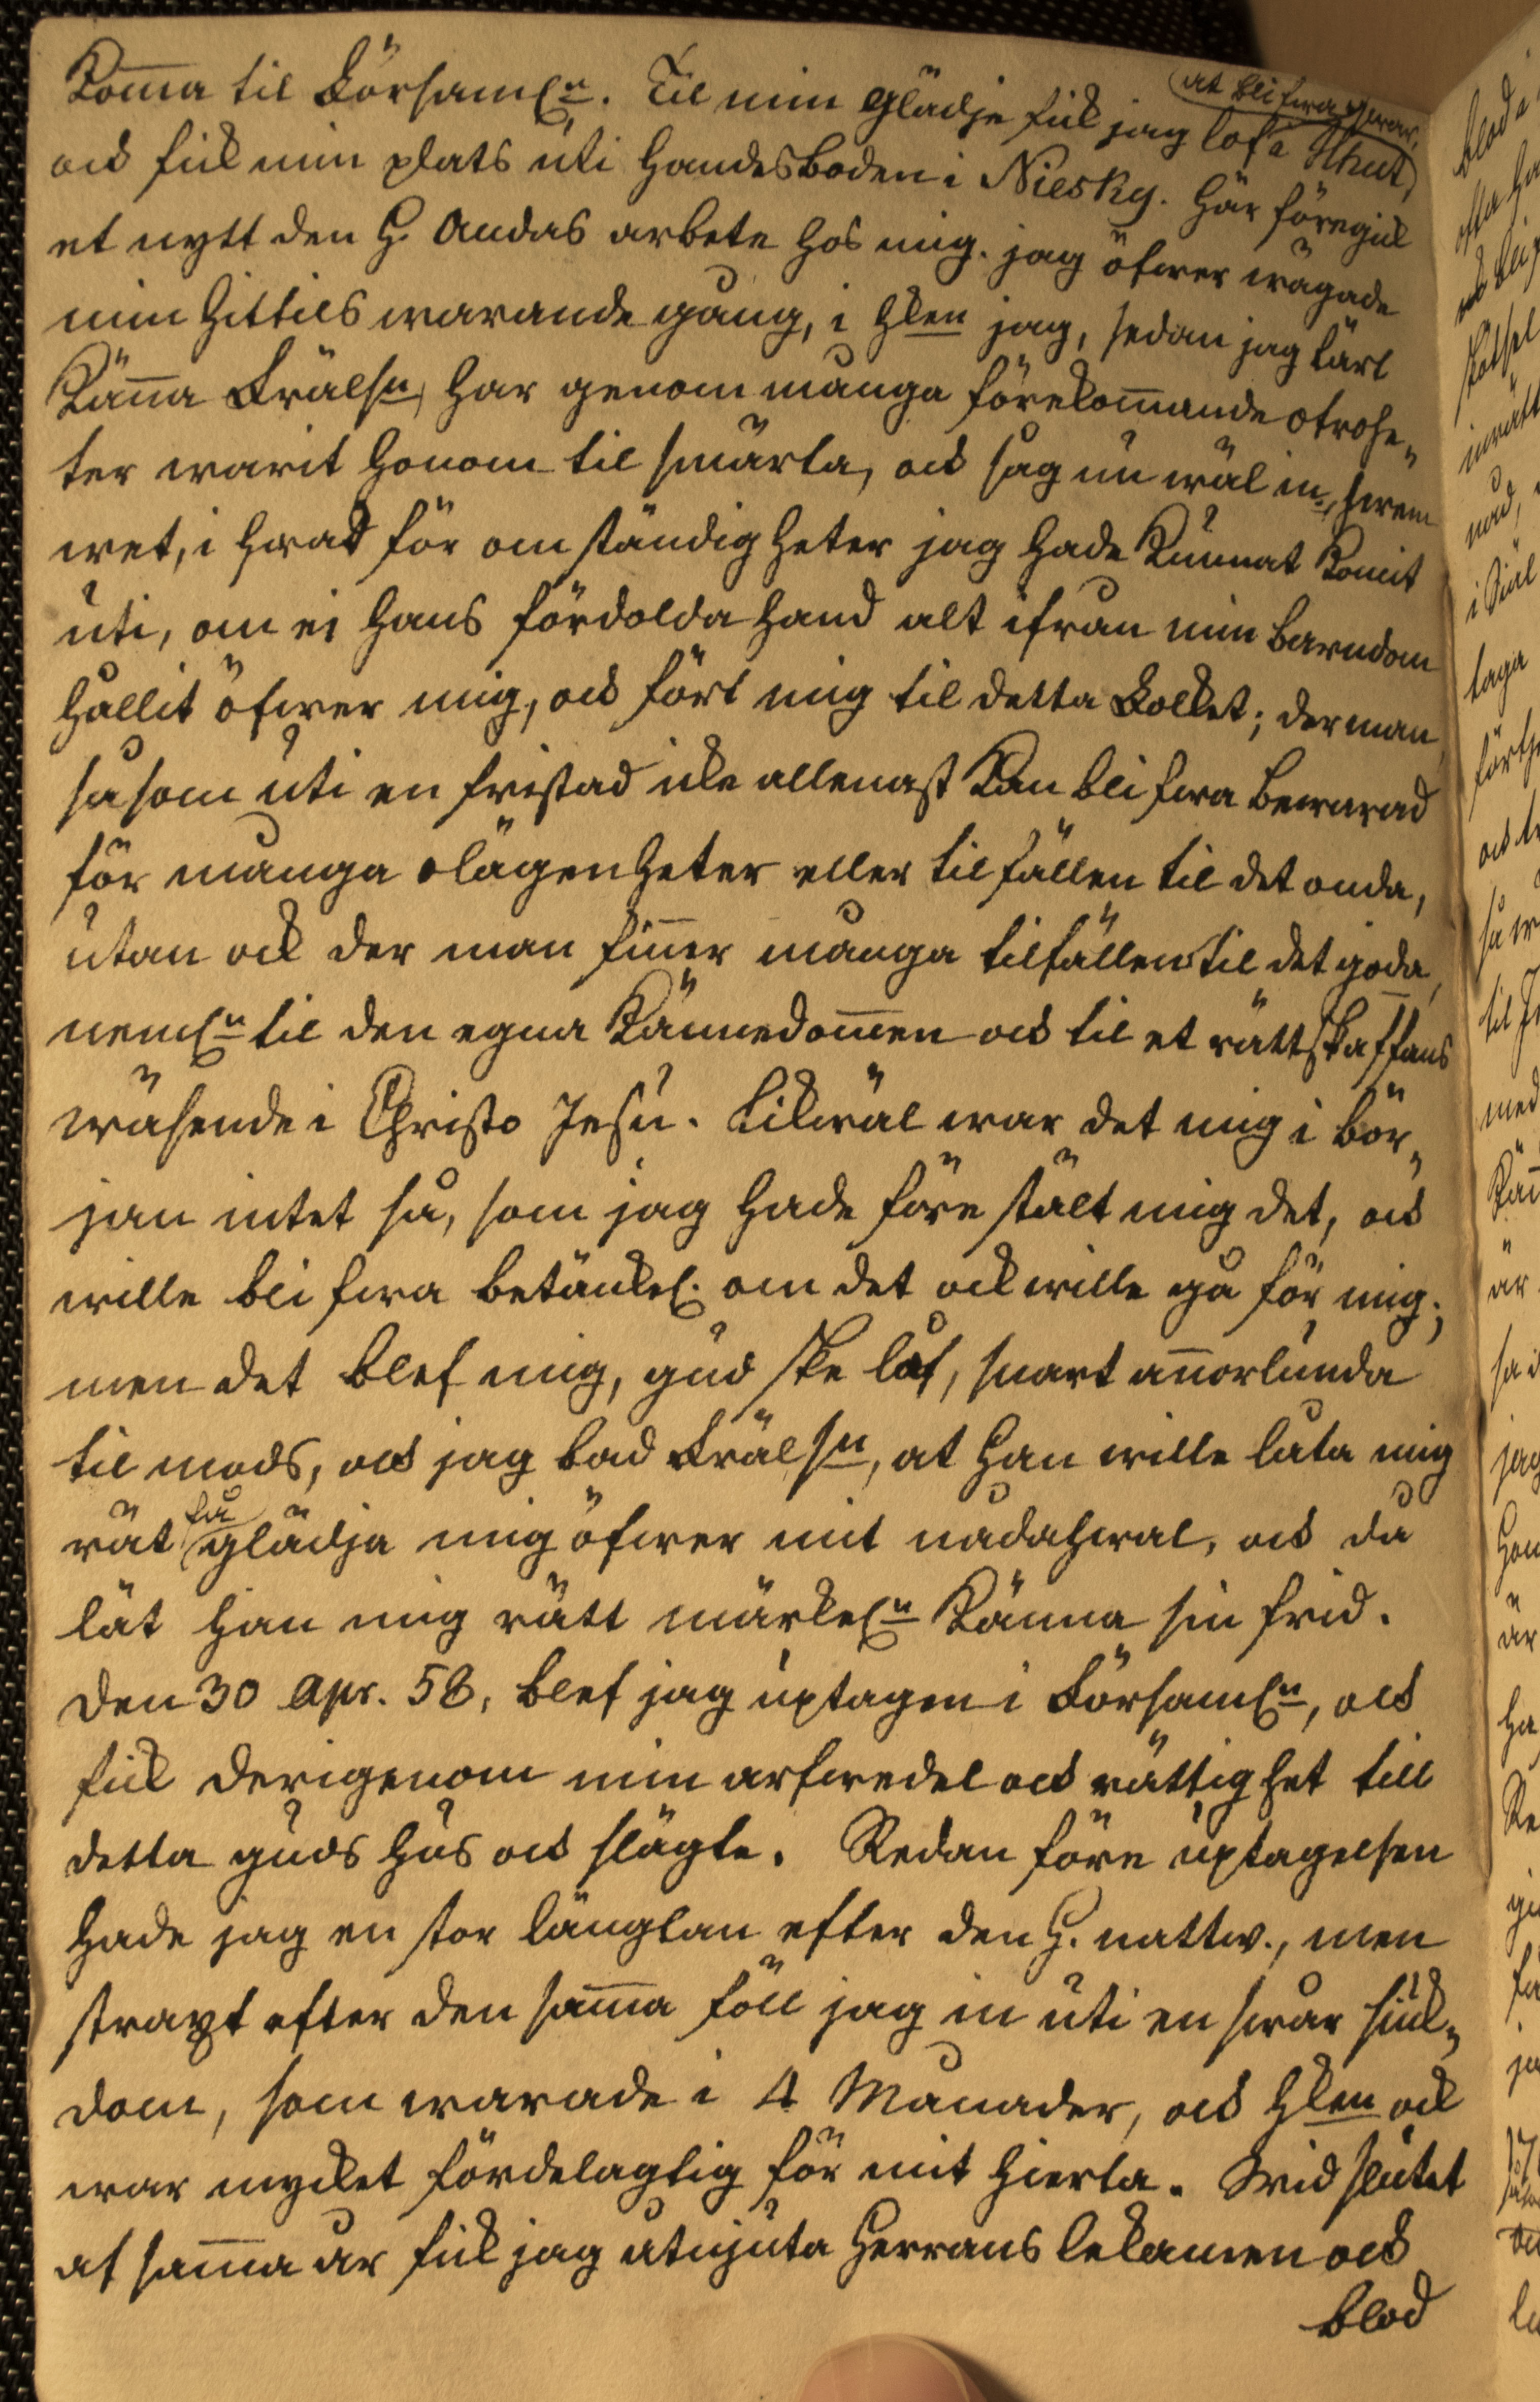 Kom̄a til Församln. Til min glädje fick jag lof at blifwa qwar,
ock fick min plats uti Handesboden i Niesky. Här föregick
et nytt den H. Andas arbete hos mig. jag öfwer wägade
min hittils warande gång, i hlken jag, sedan jag lärt
Kän̄a Frälsn, har genom många förekom̄ande otrohe„
ter warit honom til smärta, ock såg nu wäl in, hwem
wet, i hwad för omständigheter jag hade Kunnat Komit
uti, om ej Hans fördolda hand alt ifrån min barndom
hållit öfwer mig, ock fört mig til detta Folket; der man
såsom uti en fristad icke allenast Kan blifwa bewarad
för många olägenheter eller tilfällen til det onda,
utan ock der man fin̄er många tilfällen til det goda,
neml:n til den egna Kännedom̄en ock til et rättskaffens
wäsende i Christo Jesu. Likwäl war det mig i bör„
jan intet så, som jag hade förestält mig det, ock
wille blifwa betänkl. om det ock wille gå för mig;
men det blef mig, gud ske låf, snart an̄orlunda
til mods, ock jag bad Frälsn, at Han wille låta mig
rät få glädja mig öfwer mit nådahwal, ock då
lät Han mig rätt märkeln Känna sin frid.
Den 30 Apr. 58, blef jag uptagen i Församln, ock
fick derigenom min arfwedel ock rättighet till
detta guds hus ock slägte. Redan före uptagelsen
hade jag en stor längtan efter den H. nattw., men
straxt efter den sam̄a föll jag in uti en swår siuk„
dom, som warade i 4 Månader, ock hlken ock
war mycket fördelagtig för mit hierta. Wid slutet
af sam̄a år fick jag åtnjuta Herrans lekamen ock
blod